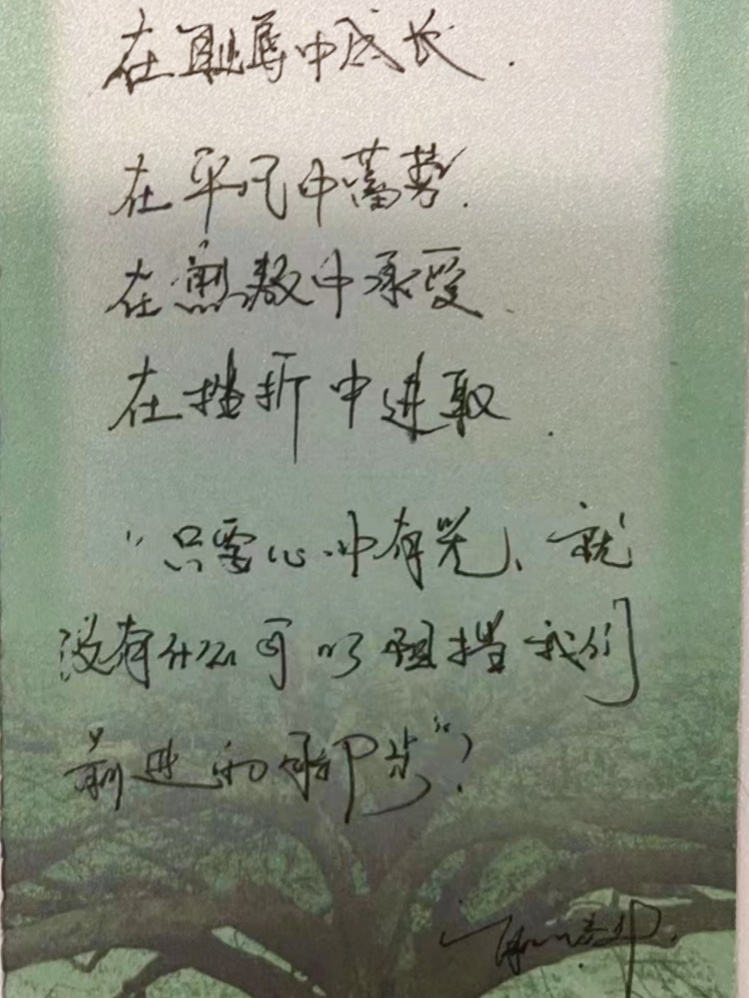 在耻辱中成长.
在平凡中蓄势.
在煎熬中承受
在挫折中进取.
“只要心中有光、就
没有什么可以阻挡我们
前进的脚步”?